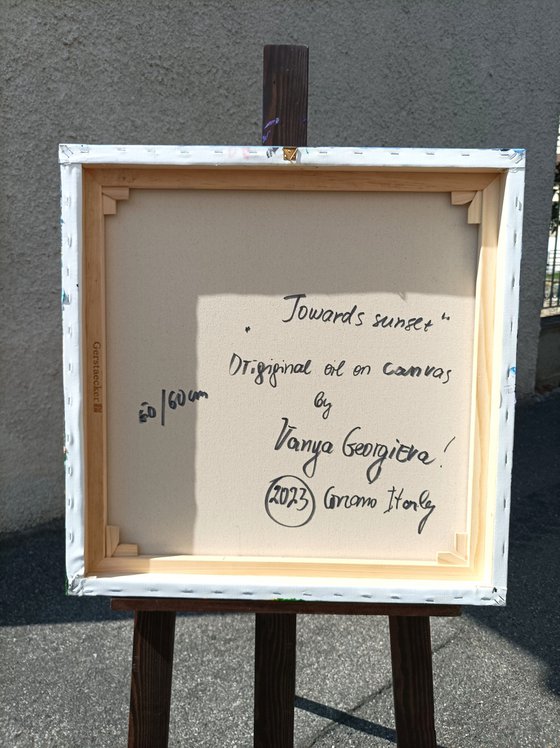 „ Towards sunset “
Origiginal oil on canvas
by
Vanya Georgieva!
2023 Italy
60/60 cm
Gerstaecker